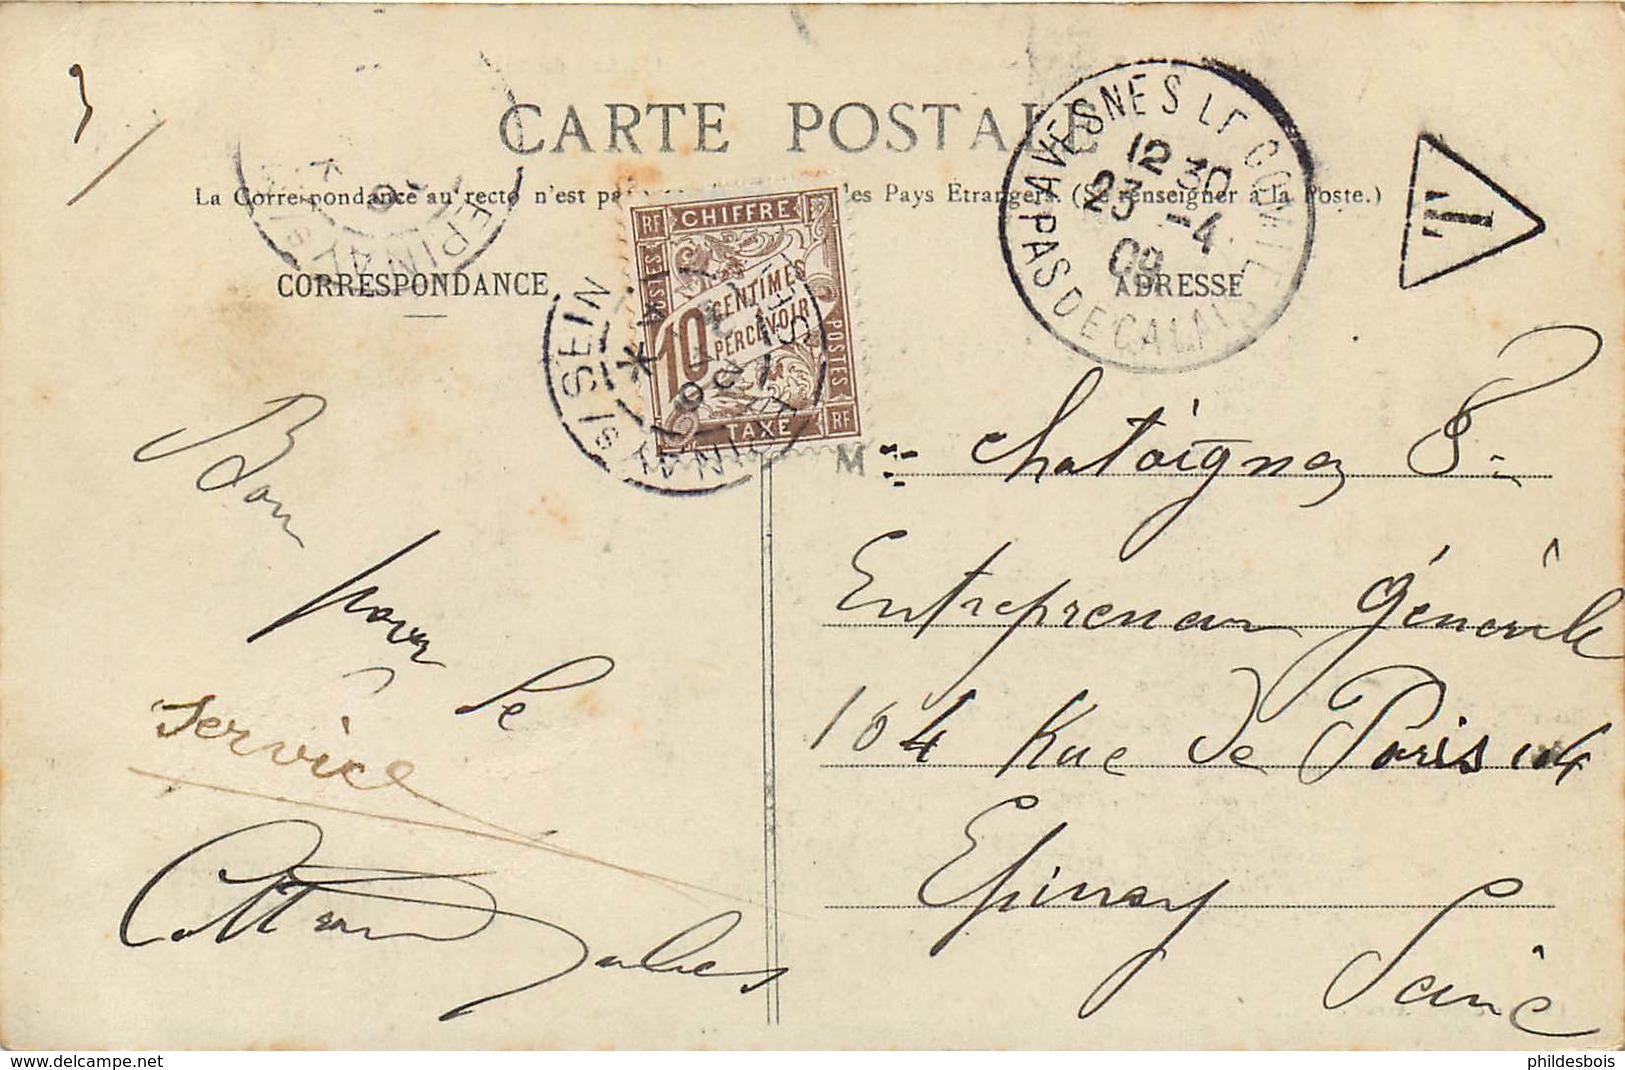 CARTE POSTALE
La Correspondance au recto n'est pas les Pays Etrangers. (Se renseigner à la Poste.)
CORRESPONDANCE
ADRESSE
AVESNES LE COMTE
12 30
23 -4
09
PAS DE CALAIS
T
EPINAY
S/S
RF CHIFFRE
POSTES
10 CENTIMES
PERCEVOIR
POSTES
TAXE RF
EPINAY S/SEINE
Bon
pour
le
service
M
Entrepreneur Générale
104 Rue de Paris 104
Epinay
Seine
delcampe.net
phildesbois